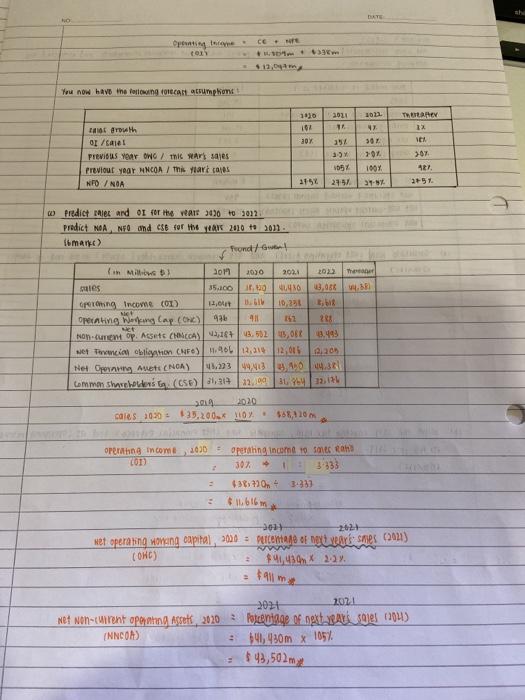 NO.
DATE
Operating Income = CE + NFE
(OI)
+ $338m
= $12,047m
You now have the following forecast assumptions:
2020 2021 2022 Thereafter
Sales growth 10%
OI / Sales 30% 25% 20% 18%
Previous year OWC / This year's sales 2.2% 2.0% 2.0%
Previous year NNCOA / This year's sales 105% 100% 98%
NFO / NOA 27.5% 27.5% 27.5% 27.5%
Predict sales and OI for the years 2020 to 2022.
Predict NOA, NFO and CSE for the years 2020 to 2022.
(6 marks)
Found / Given!
(in Millions $) 2019 2020 2021 2022 Thereafter
Sales 35,200 38,720 41,430 43,088 44,381
Operating Income (OI) 11,616 10,358 8,618
Net
Operating Working Cap (OWC) 976 911 862 888
Net
Non-current Op. Assets (NNCOA) 43,502 43,088 43,493
Net Financial Obligation (NFO) 11,906 12,214 12,086 12,205
Net Operating Assets (NOA) 43,223 44,413 43,950 44,381
Common Shareholder's Eq. (CSE) 31,317 32,199 31,864 32,176
2019 2020
Sales 2020 = $35,200m x 110% = $38,720m
Operating income, 2020 = Operating income to sales Ratio
(OI)
= 30% → 1 : 3.333
= $38,720m ÷ 3.333
= $11,616m
2021 2021
Net operating working capital, 2020 = Percentage of next year's sales (2021)
(OWC)
= $41,430m x 2.2%
= $911m
2021 2021
Net Non-current operating Assets, 2020 = Percentage of next year's sales (2021)
(NNCOA)
= $41,430m x 105%
= $43,502m